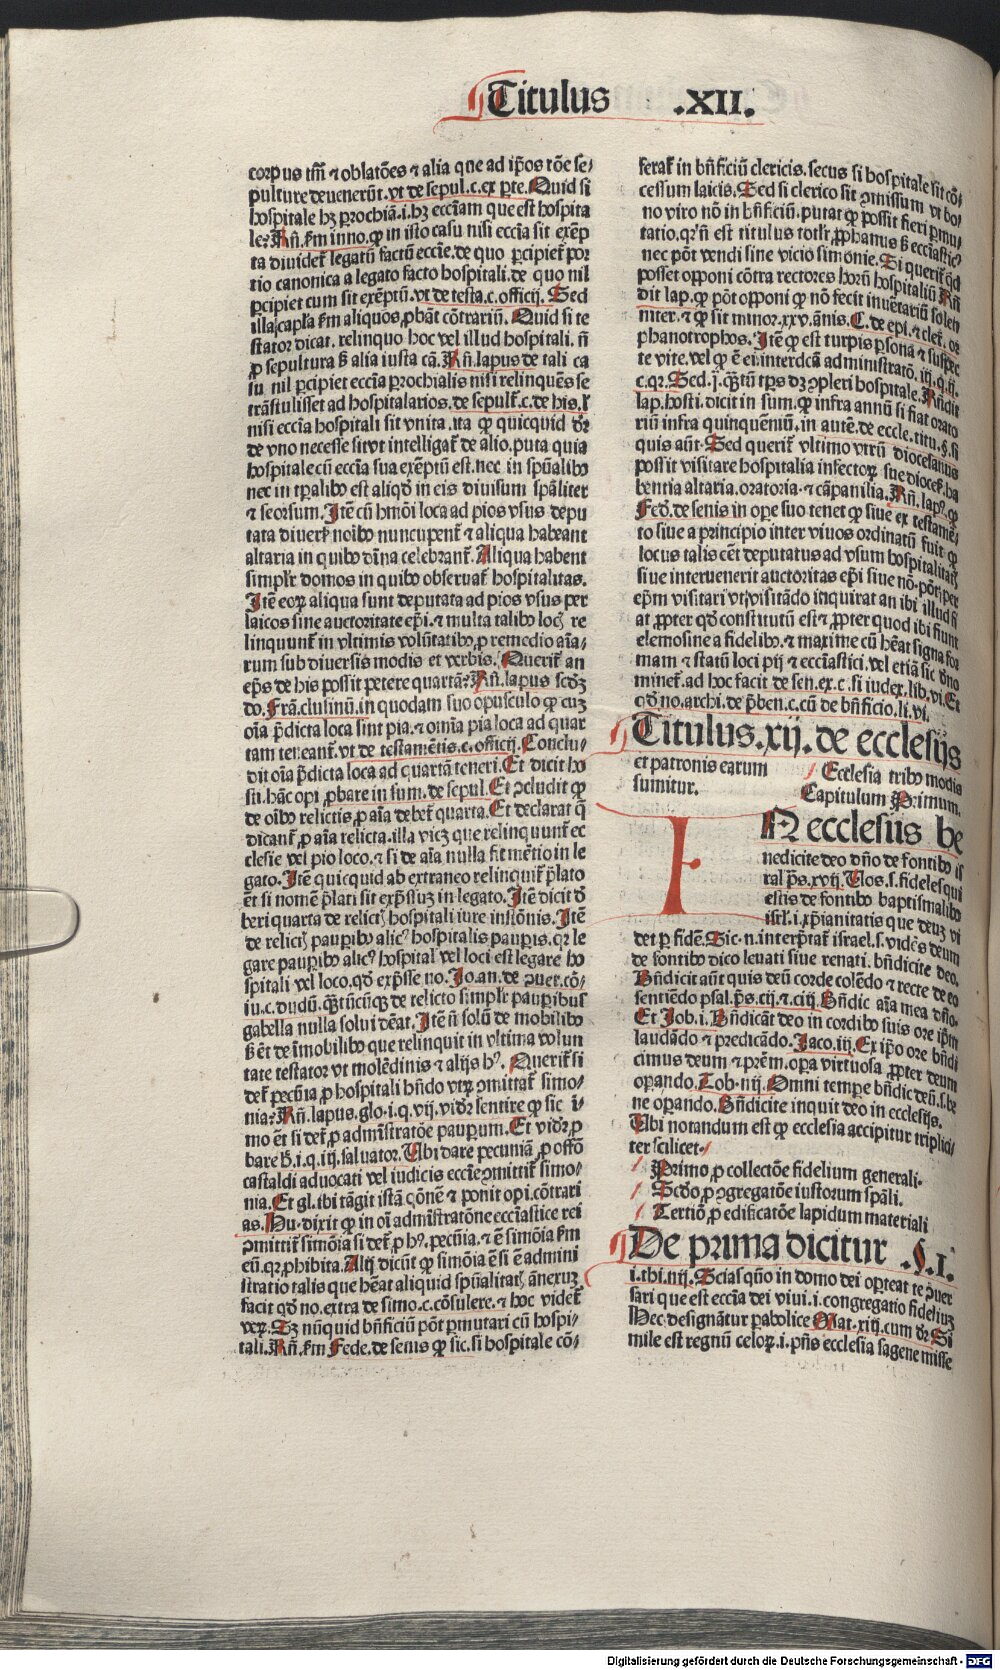 Titulus .XII.
corpus tm̄ ⁊ oblatōes ⁊ alia que ad ip̄os rōe se⸗
pulture deuenerūt.vt de sepul.c.ex pte. Quid si
hospitale hꝫ prochiā.i.hꝫ eccīam que est hospita
le? Rn̄.km inno.ꝙ in isto casu nisi eccīa sit exēp
ta diuidet̄ legatū factū eccīe.de quo ꝑcipiet por
tio canonica a legato facto hospitali.de quo nil
ꝑcipiet cum sit exēptū.vt de testa.c.officij. Sed
illa capl̄a km aliquos ꝓbāt cōtrariū. Quid si te
stator dicat. relinquo hoc vel illud hospitali. n̄
ꝓ sepultura ß alia iusta cā. Rn̄.lapus de tali ca
su nil ꝑcipiet eccīa prochialis nisi relinquēs se
trāstulisset ad hospitalarios.de sepult̄.c.de his.l̄
nisi eccīa hospitali sit vnita.ita ꝙ quicquid dr̄
de vno necesse sit vt intelligat̄ de alio.puta quia
hospitale cū eccīa sua exēptū est.nec in spūalibꝰ
nec in tp̄alibꝰ est aliqd̄ in eis diuisum spāliter
⁊ seorsum. Itē cū hmōi loca ad pios vsus depu
tata diuersꝭ noībꝰ nuncupent̄ ⁊ aliqua habeant
altaria in quibꝰ dīna celebrant̄. Aliqua habent
simplr̄ domos in quibꝰ obseruat̄ hospitalitas.
Itē eoꝝ aliqua sunt deputata ad pios vsus per
laicos sine auctoritate epī.⁊ multa talibꝰ locꝭ re
linquunt̄ in vltimis volūtatibꝰ ꝓ remedio aīa⸗
rum sub diuersis modis et verbis. Querit̄ an
ep̄s de his possit petere quartā? Rn̄.lapus scdꝫ
do. Frā.clusinū.in quodam suo opusculo ꝙ cuꝫ
oīa p̄dicta loca sint pia.⁊ omīa pia loca ad quar
tam teneant̄.vt de testamētis.c.officij. Conclu⸗
dit oīa p̄dicta loca ad quartā teneri. Et dicit ho
sti.hāc opi.ꝓbare in sum.de sepul. Et ɔcludit ꝙ
de oībꝰ relictis ꝓ aīa debet̄ quarta. Et declarat q̄
dicant̄ ꝓ aīa relicta.illa vicꝫ que relinquunt̄ ec
clesie vel pio loco.⁊ si de aīa nulla fit mētio in le
gato. Itē quicquid ab extraneo relinquit̄ p̄lato
et si nomē p̄lati sit exp̄ssuꝫ in legato. Itē dicit ō
beri quarta de relictꝭ hospitali iure instōnis. Itē
de relictꝭ pauꝑibꝰ alicꝰ hospitalis pauꝑis.qꝛ le
gare pauꝑibꝰ alicꝰ hospital̄ vel loci est legare ho
spitali vel loco.qd̄ exp̄sse no. Jo.an.de ɔuer.cō⸗
iu.c.dudū.qꝫtūcūqꝫ de relicto simplr̄ pauꝑibus
gabella nulla solui dēat. Itē n̄ solū de mobilibꝰ
ß ēt de īmobilibꝰ que relinquit in vltima volun
tate testator vt molēdinis ⁊ alijs hꝰ. Querit̄ si
det̄ pecūia ꝓ hospitali bn̄do vtꝝ ɔmittat̄ simo⸗
nia? Rn̄.lapus.glo.i.q.vij.vidr̄ sentire ꝙ sic ī⸗
mo ēt si det̄ ꝓ admīstratōe pauꝑum. Et vidr̄ ꝓ
bare ß.i.q.iij.saluator. Ubi dare pecuniā ꝓ offō
castaldi aduocati vel iudicis eccīe ɔmittit̄ simo⸗
nia. Et gl.ibi tāgit istā qōnē ⁊ ponit opi.cōtrari
as. Hu.dixit ꝙ in oī admīstratōne eccīastice rei
ɔmittit̄ simōia si det̄ ꝓ hꝰ.pecūia.⁊ ē simōia km
eū.qꝛ ꝓhibita. Alij dicūt ꝙ simōia ē si ē admini
stratio talis que hēat aliquid spūalitatꝭ ānexuꝫ
facit qd̄ no.extra de simo.c.cōsulere.⁊ hoc videt̄
veꝝ. Sꝫ nūquid bn̄ficiū pōt ꝑmutari cū hospi⸗
tali. Rn̄.km Fede.de senis ꝙ sic.si hospitale cō⸗
ferat̄ in bn̄ficiū clericis.secus si hospitale sit cō⸗
cessum laicis. Sed si clerico sit ɔmissum vt bo⸗
no viro nō in bn̄ficiū.putat ꝙ possit fieri ꝑmu⸗
tatio.qꝛ n̄ est titulus totlr̄ ꝓphanus ß eccīasticꝰ
nec pōt vendi sine vicio simonie. Si querit̄ qd̄
posset opponi cōtra rectores horū hospitaliū Rn̄
dit lap.ꝙ pōt opponi ꝙ nō fecit inuētariū solen
niter.⁊ ꝙ sit minor.xxv.ānis. C.de epi.⁊ cler.or
phanotrophos. Itē ꝙ est turpis ꝑsona ⁊ suspec
te vite.vel ꝙ ē ei interdcā administratō.iij.q.ij.
c.qꝛ. Sed.j.qꝫtū tp̄s dꝫ ɔpleri hospitale. Rn̄dit
lap.hosti.dicit in sum.ꝙ infra annū si fiat orato
riū infra quinquēniū.in autē.de eccle.titu.§.si
quis aūt. Sed querit̄ vltimo vtrū diocesanus
possit visitare hospitalia infectoꝝ sue dioces̄.ha
bentia altaria.oratoria.⁊ cāpanilia. Rn̄.lapꝰ.ꝙ
Fed.de senis in ope suo tenet ꝙ siue ex testamē⸗
to siue a principio inter viuos ordinatū fuit ꝙ
locus talis cēt deputatus ad vsum hospitalitatꝭ
siue interuenerit auctoritas ep̄i siue nō.pōt ꝑ
ep̄m visitari vt visitādo inquirat an ibi illud si
at ꝓpter qd̄ constitutū est ⁊ ꝓpter quod ibi fiunt
elemosine a fidelibꝰ.⁊ maxime cū hēat signa for
mam ⁊ statū loci pij ⁊ eccīastici.vel etiā sic ɔno
minet̄.ad hoc facit de sen.ex.c.si iudex.lib.vi. Et
qd̄ no.archi.de p̄ben.c.cū de bn̄ficio.li.vi.
Titulus.xij.de ecclesijs
et patronis earum
Ecclesia tribꝰ modis
sumitur.
Capitulum Primum.
IN ecclesiis be
nedicite deo dn̄o de fontibꝰ is
rał p̄s.xvij. Uos.s.fideles qui
estis de fontibꝰ baptismalibꝰ
isrl̄.i.xp̄ianitatis que deuꝫ vi
det ꝑ fidē. Sic.n.interp̄tat̄ israel.s.vidēs deum
de fontibꝰ dico leuati siue renati.bn̄dicite deo.
Bn̄dicit aūt quis deū corde colēdo ⁊ recte de eo
sentiēdo psal.p̄s.cij.⁊ ciij. Bn̄dic aīa mea dn̄o.
Et Job.i. Bn̄dicāt deo in cordibꝰ suis ore ip̄m
laudādo ⁊ predicādo. Jaco.iij. Ex ip̄o ore bn̄di
cimus deum ⁊ prēm.opa virtuosa ꝓpter deum
oꝑando. Tob.iiij. Omni tempe bn̄dic deū.s.be
ne oꝑando. Bn̄dicite inquit deo in ecclesijs.
Ubi notandum est ꝙ ecclesia accipitur triplici⸗
ter scilicet.
Primo ꝓ collectōe fidelium generali.
Scdo ꝓ ɔgregatōe iustorum spāli.
Tertio ꝓ edificatōe lapidum materiali
De prima dicitur .§.I.
i.thi.iiij. Scias qūo in domo dei oꝑteat te ɔuer
sari que est eccīa dei viui.i.congregatio fideliuꝫ
Hec designātur ꝑabolice Mat.xiij.cum dr̄ Si
mile est regnū celoꝝ.i.pn̄s ecclesia sagene misse
Digitalisierung gefördert durch die Deutsche Forschungsgemeinschaft - DFG